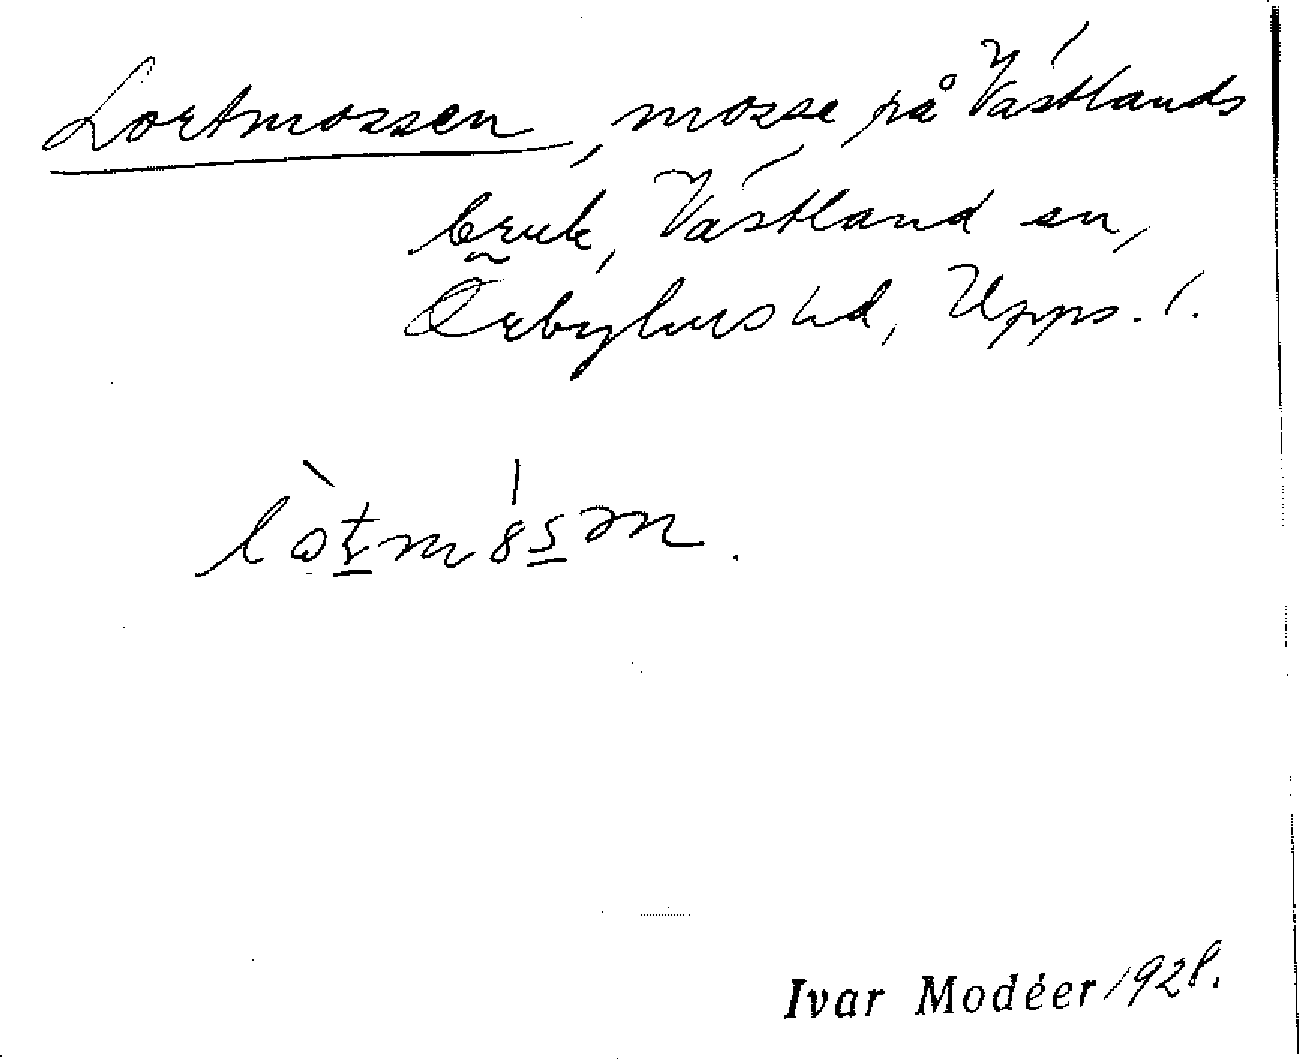 Lortmossen, mosse på Västlands
bruk, Västland sn,
Örbyhus hd, Upps. l.
Ivar Modéer 1928.